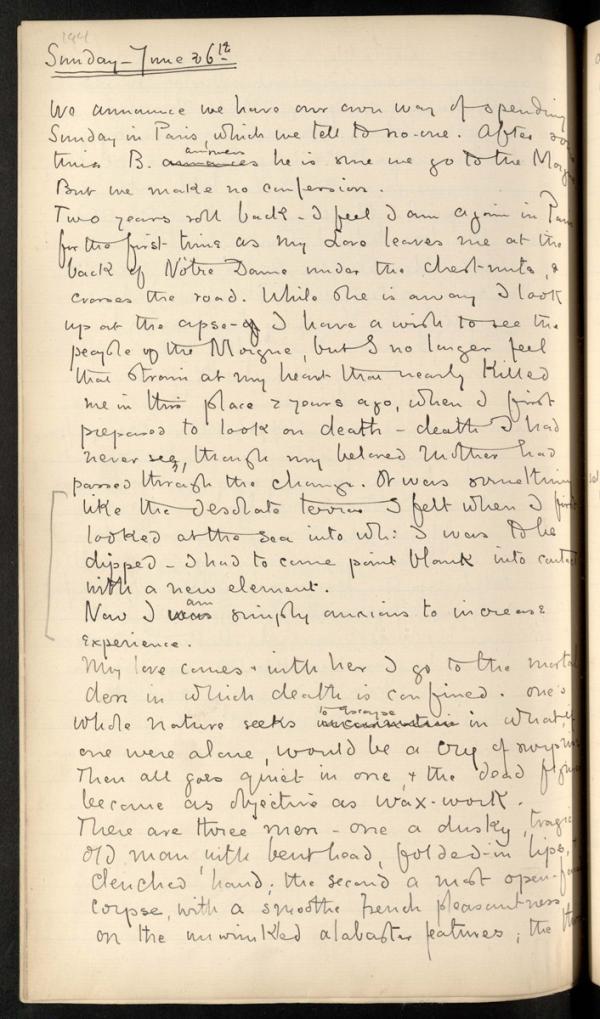 Sunday – June 26th
We announce we have our own way of spending
Sunday in Paris, which we tell to no-one. After
this B. answers announces he is sure we go to the Morgue
But we make no confession.
Two years roll back – I feel I am again in Paris
for the first time as my Love leaves me at the
back of Nôtre Dame under the chestnuts, &
crosses the road. While she is away I look
up at the apse – I have a wish to see the
people of the Morgue, but I no longer feel
that strain at my heart that nearly killed
me in this place 2 years ago, when I first
prepared to look on death – death I had
never seen, though my beloved Mother had
passed through the change. It was something
like the desolate terror I felt when I first
looked at the sea into wh: I was to be
dipped – I had to come point blank into contact
with a new element.
Now I was am simply anxious to increase
experience.
My love comes & with her I go to the mortal
den in which death is confined. One's
whole nature seeks to escape in what, if
one were alone, would be a cry of
Then all goes quiet in one, & the dead
become as objective as wax-work.
There are three men – one a dusky, tragic
old man with bent head, folded-in lips,
clenched hand; the second a most open-
corpse, with a smoothe French pleasantness
on the unwinked alabaster features; the